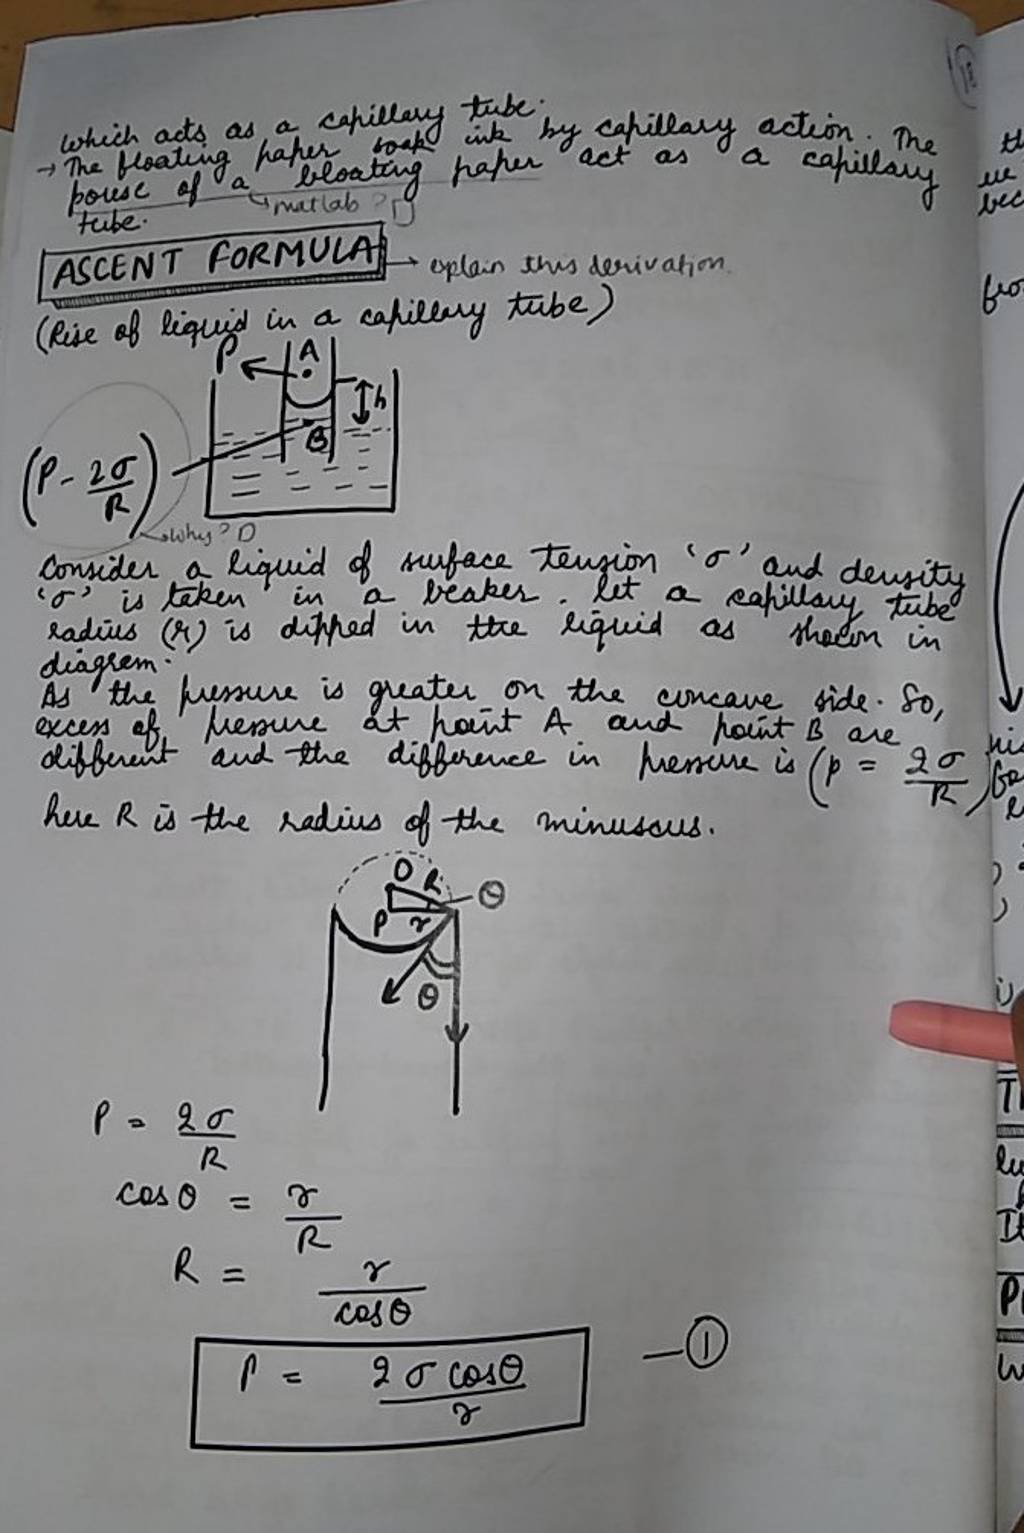 which acts as a capillary tube.
→ The bloating paper soak ink by capillary action. The
pouse of a bloating paper act as a capillary
tube.
matlab?
ASCENT FORMULA → explain this derivation.
(Rise of liquid in a capillary tube)
P
A
h
B
(P - 2σ/R)
why?
Consider a liquid of surface tension 'σ' and density
'σ' is taken in a beaker. let a capillary tube
radius (r) is dipped in the liquid as shown in
diagram.
As the pressure is greater on the concave side. So,
excess of pressure at point A and point B are
different and the difference in pressure is (p = 2σ/R)
here R is the radius of the minuscus.
O R θ
P r
θ
P = 2σ/R
cosθ = r/R
R = r/cosθ
P = 2σ cosθ/r — ①